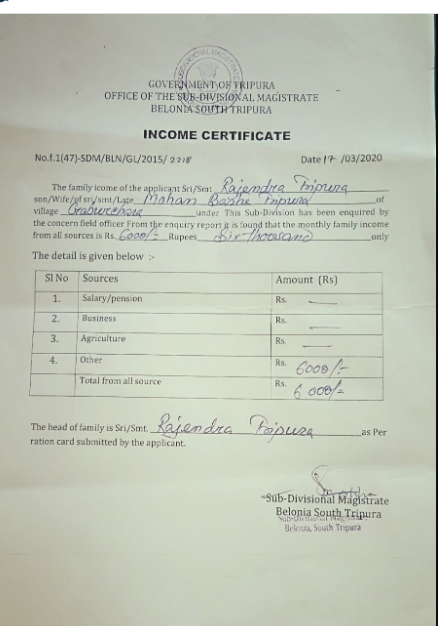 GOVERNMENT OF TRIPURA
OFFICE OF THE SUB-DIVISIONAL MAGISTRATE
BELONIA SOUTH TRIPURA
INCOME CERTIFICATE
No.f.1(47)-SDM/BLN/GL/2015/ Date 17 /03/2020
The family icome of the applicant Sri/Smt Rajendra Tripura
son/Wife/of sri/smt/Late Mohan Bashi Tripura of
village under This Sub-Division has been enquired by
the concern field officer From the enquiry report it is found that the monthly family income
from all sources is Rs. 6000/- Rupees Six thousand only
The detail is given below :-
Sl No Sources Amount (Rs)
1. Salary/pension Rs. —
2. Business Rs. —
3. Agriculture Rs. —
4. Other Rs. 6000/-
Total from all source Rs. 6000/-
The head of family is Sri/Smt. Rajendra Tripura as Per
ration card submitted by the applicant.
Sub-Divisional Magistrate
Belonia South Tripura
Sub-Divisional Magistrate
Belonia, South Tripura